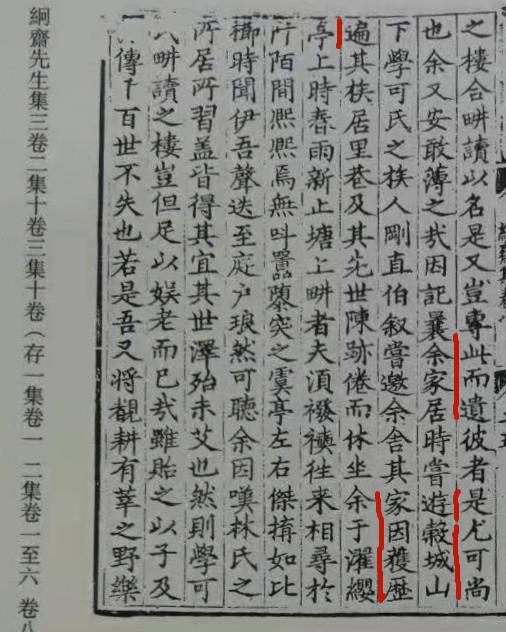 之樓合畊讀以名是又豈專此而遺彼者是尤可尚
也余又安敢薄之㢤因記曩余家居時嘗遊榖城山
下學可氏之族人剛直伯叙嘗邀余舍其家因獲歷
遍其族居里巷及其先世陳跡倦而休坐余于濯纓
亭上時春雨新止塘上畊者夫湏襏襫徃来相尋於
阡陌間熙熙焉無呌嚚隳突之虞亭左右傑搆如比
櫛時聞伊吾聲迭至庭户琅然可聽余因嘆林氏之
所居所習盖皆得其宜其世澤殆未艾也然則學可
畊讀之樓豈但足以娱老而已㢤雖貽之以子及
傳千百世不失也若是吾又將觀耕有莘之野樂
絅齋先生集三卷二集十卷三集十卷（存一集卷一 二集卷一至六 卷八